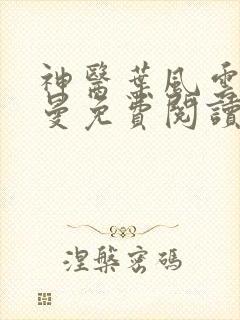 神醫葉風雲
曼免費閱讀
涅槃密碼